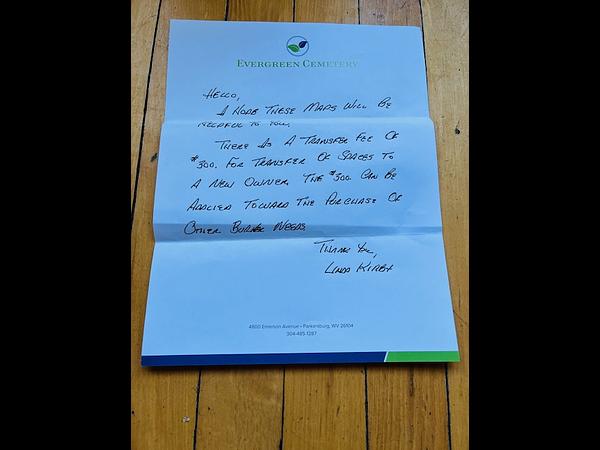 EVERGREEN CEMETERY
HELLO,
I HOPE THESE MAPS WILL BE
HELPFUL TO YOU.
THERE IS A TRANSFER FEE OF
$300. FOR TRANSFER OF SPACES TO
A NEW OWNER. THE $300 CAN BE
APPLIED TOWARD THE PURCHASE OF
OTHER BURIAL NEEDS
THANK YOU,
LINDA KIRBY
4800 Emerson Avenue • Parkersburg, WV 26104
304-485-1287